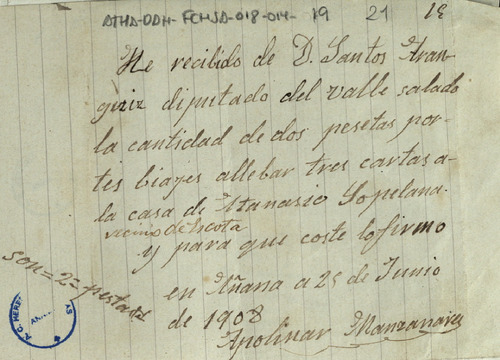 ATHA-DAH-FCHSA-018-014-19 21 19
He recibido de D. Santos Aran-
guiz diputado del valle salado
la cantidad de dos pesetas por
tes biazes allebar tres cartas a
la casa de Atanasio Sopelana
vecino de Escota
y para que coste lo firmo
son = 2 = pesetas
en Añana a 25 de Junio
de 1908
Apolinar Manzanares